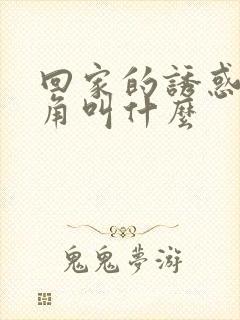 回家的誘惑
角叫什麼
鬼鬼夢游